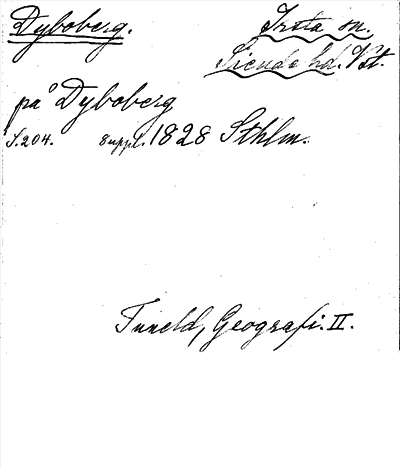 Dyboberg.
Irsta sn.
Siende hd. Vst.
på Dyboberg
S.204. suppl. 1828 Sthlm.
Tuneld, Geografi. II.